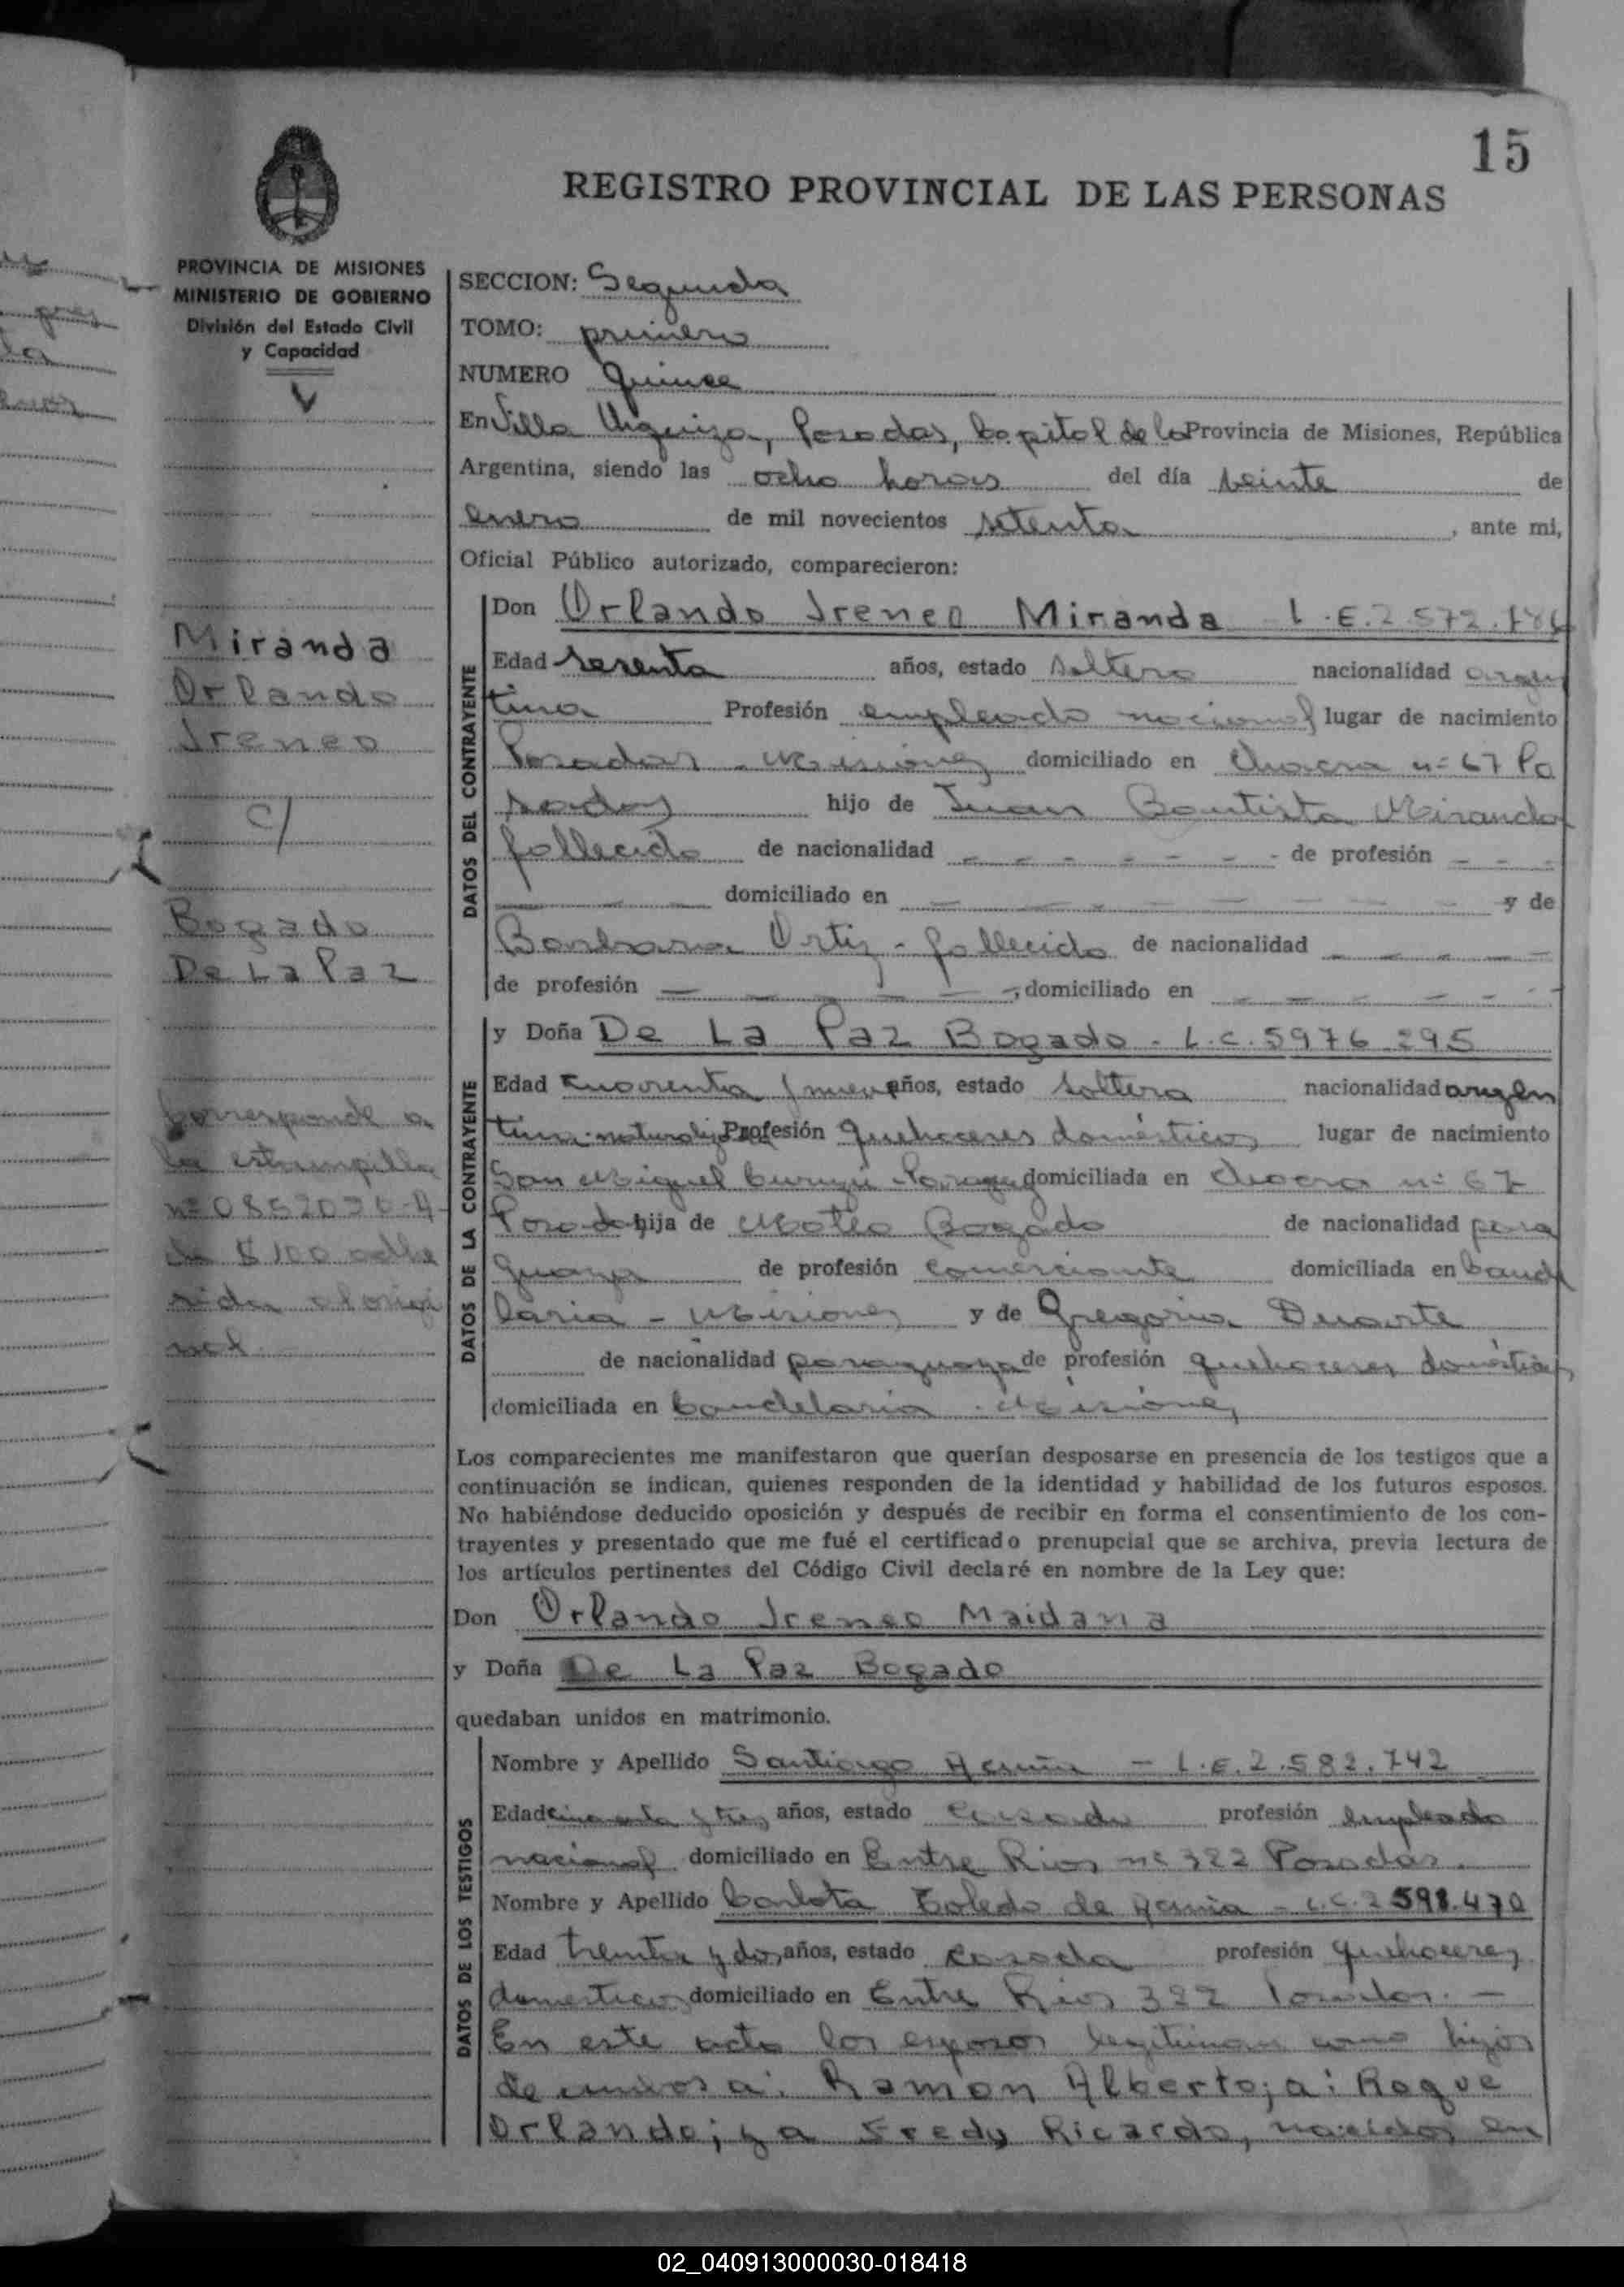 15
REGISTRO PROVINCIAL DE LAS PERSONAS
PROVINCIA DE MISIONES
MINISTERIO DE GOBIERNO
División del Estado Civil
y Capacidad
SECCION: Segunda
TOMO: primero
NUMERO quince
En Villa Urquiza, Posadas, Capital de la Provincia de Misiones, República
Argentina, siendo las ocho horas del día veinte de
enero de mil novecientos setenta, ante mi,
Oficial Público autorizado, comparecieron:
Miranda
Orlando
Ireneo
c/
Bogado
De La Paz
Corresponde a
la estampilla
de $ 100 adhe
rida al origi
nal.
DATOS DEL CONTRAYENTE
Don Orlando Ireneo Miranda L.E. 2.572.
Edad sesenta años, estado soltero nacionalidad argen
tina Profesión empleado nacional lugar de nacimiento
Posadas - Misiones domiciliado en Chacra nº 67 Po
sadas hijo de Juan Bautista Miranda
fallecido de nacionalidad - - - - - - - de profesión - - -
- - - domiciliado en - - - - - - - y de
Barbara Ortiz - fallecida de nacionalidad - - - - -
de profesión - - - - -, domiciliado en - - - - - -
DATOS DE LA CONTRAYENTE
y Doña De La Paz Bogado - L.C. 5976.295
Edad cuarenta y nueve años, estado soltera nacionalidad argen
tina naturalizada Profesión quehaceres domésticos lugar de nacimiento
San Miguel Curuzú Paraguay domiciliada en chacra nº 67
Posadas hija de Mateo Bogado de nacionalidad para
guaya de profesión comerciante domiciliada en Cande
laria - Misiones y de Gregoria Duarte
de nacionalidad paraguaya de profesión quehaceres domésticos
domiciliada en Candelaria - Misiones
Los comparecientes me manifestaron que querían desposarse en presencia de los testigos que a
continuación se indican, quienes responden de la identidad y habilidad de los futuros esposos.
No habiéndose deducido oposición y después de recibir en forma el consentimiento de los con-
trayentes y presentado que me fué el certificado prenupcial que se archiva, previa lectura de
los artículos pertinentes del Código Civil declaré en nombre de la Ley que:
Don Orlando Ireneo Maidana
y Doña De La Paz Bogado
quedaban unidos en matrimonio.
DATOS DE LOS TESTIGOS
Nombre y Apellido Santiago Acuña - L.E. 2.582.742
Edad cincuenta y tres años, estado casado profesión empleado
nacional domiciliado en Entre Rios nº 322 Posadas.
Nombre y Apellido Carlota Toledo de Acuña - L.C. 2.598.470
Edad treinta y dos años, estado casada profesión quehaceres
domesticos domiciliado en Entre Rios 322 Posadas. -
En este acto los esposos legitiman como hijos
de ambos a: Ramon Alberto; a: Roque
Orlando; y a Fredy Ricardo, nacidos en
02_040913000030-018418